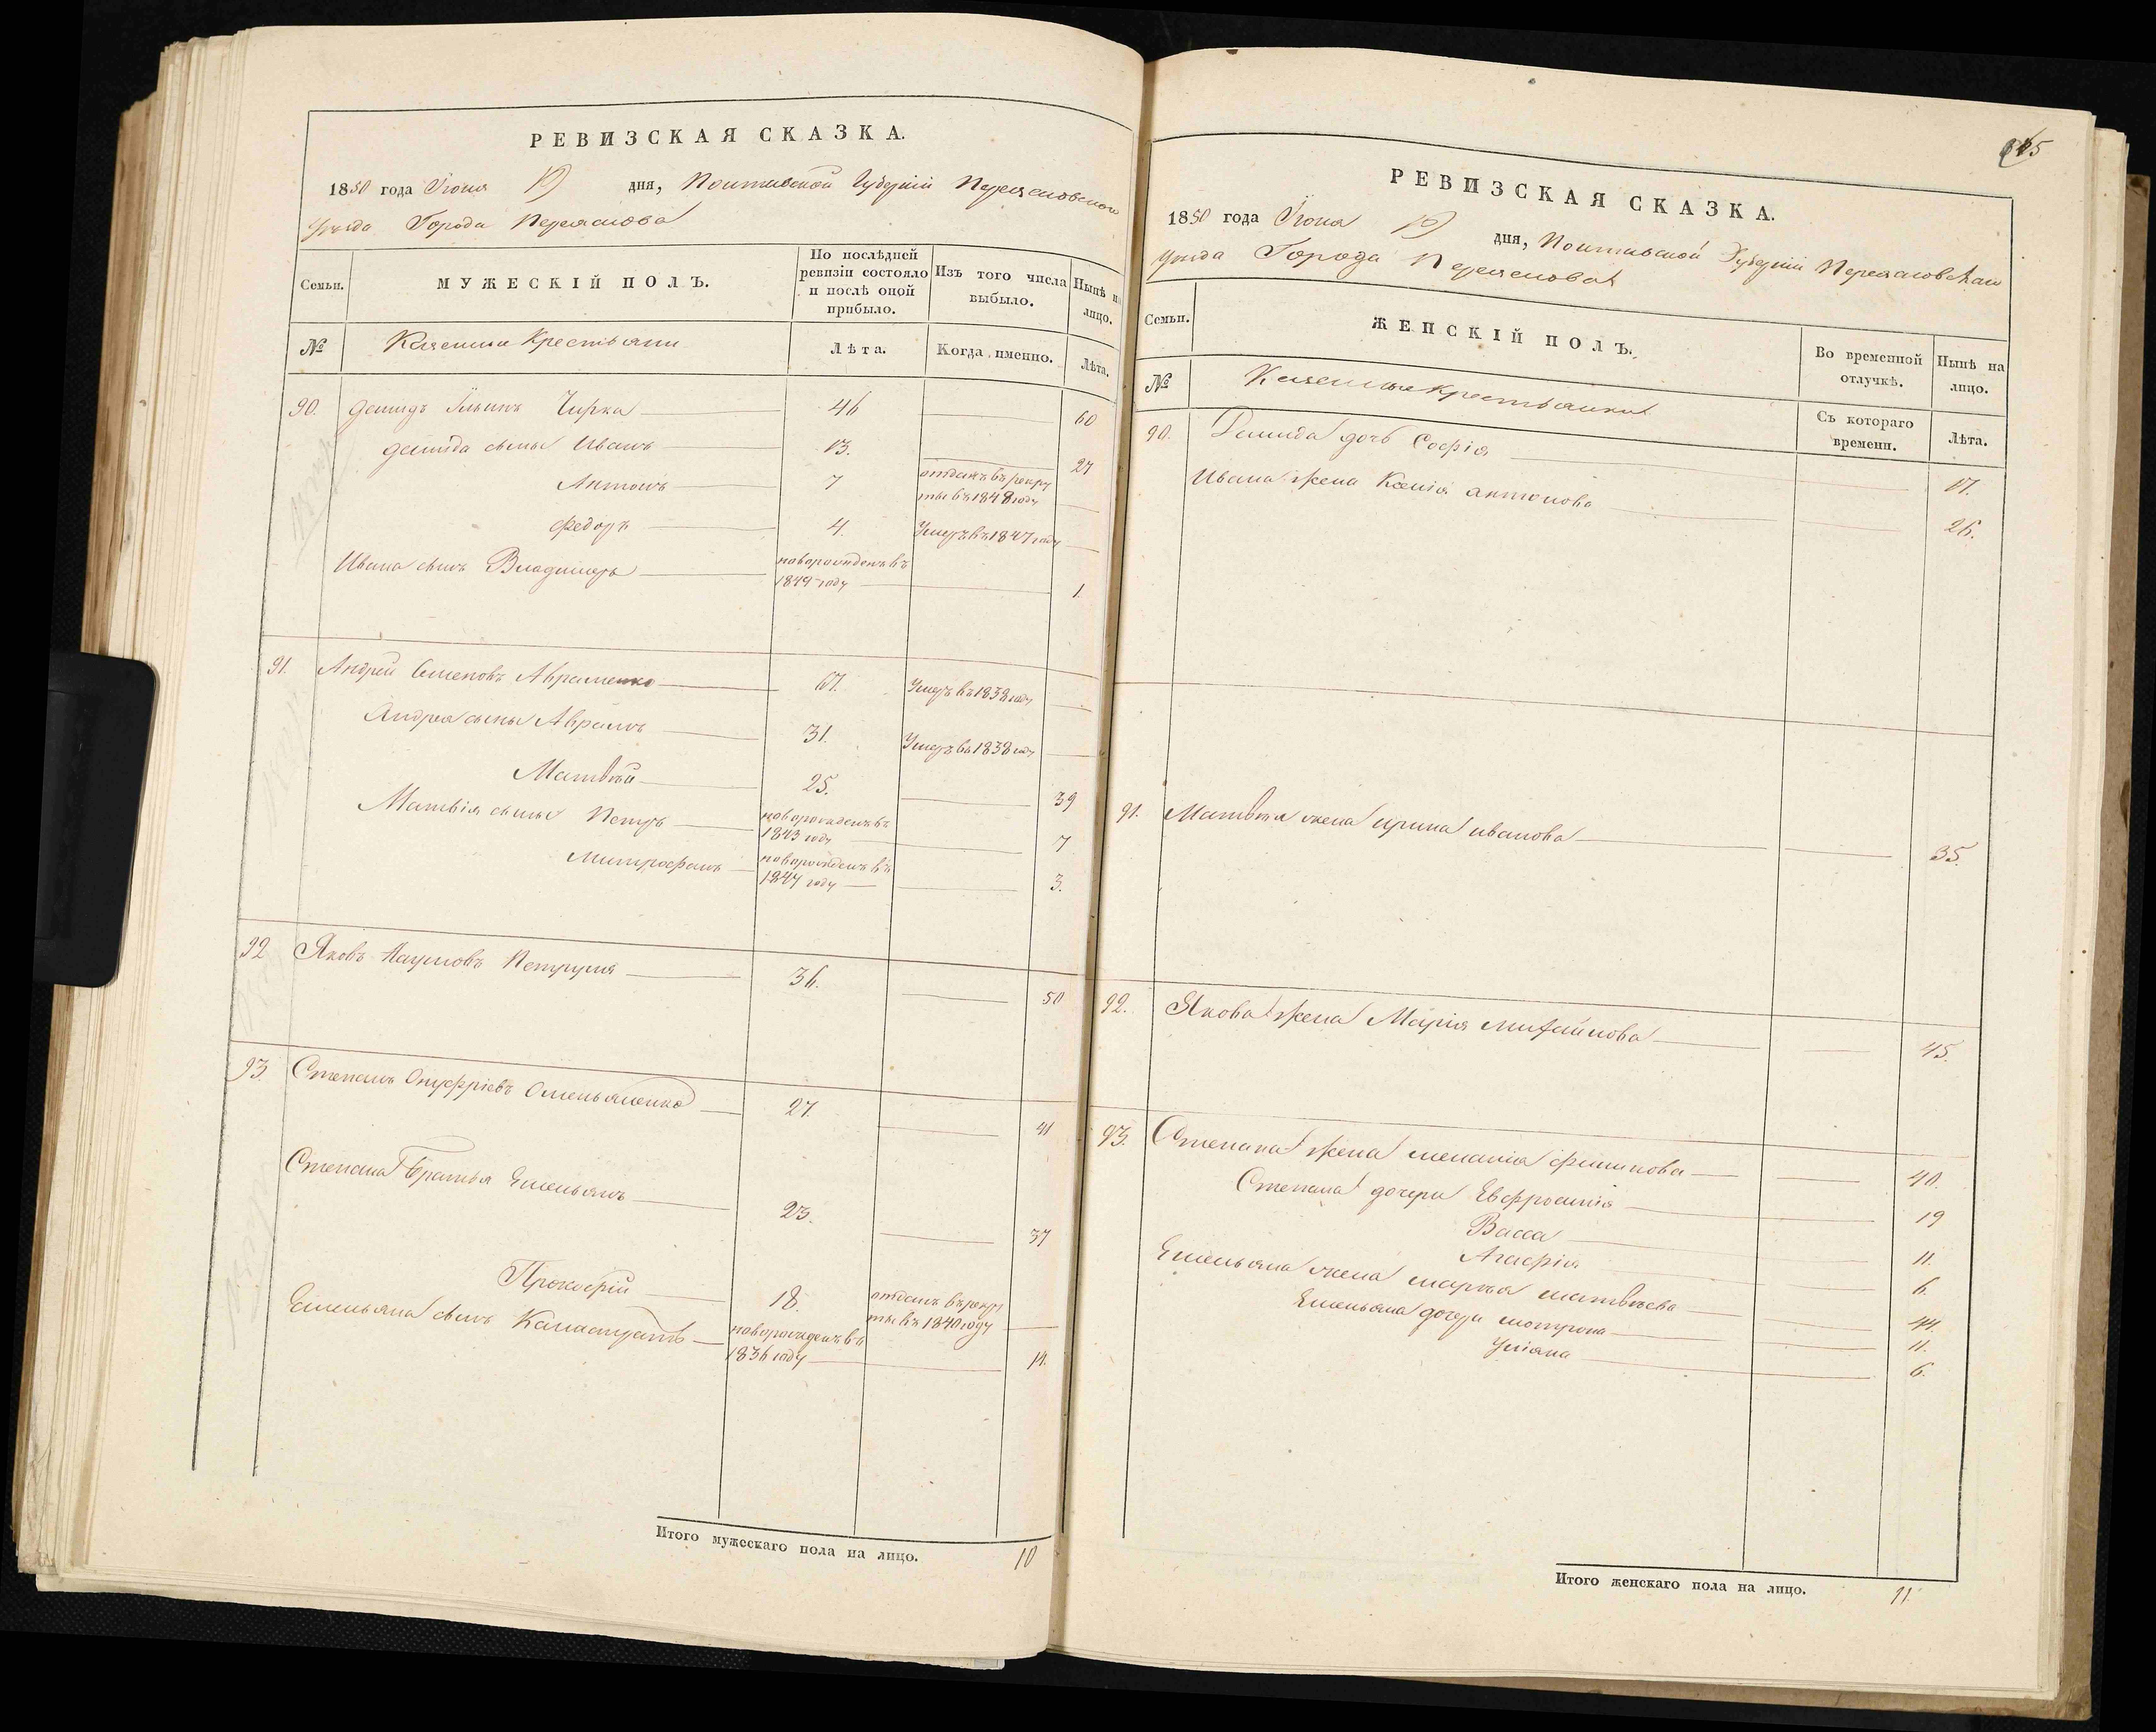 РЕВИЗСКАЯ СКАЗКА.
1850 года Іюня дня, Полтавской Губерніи Переяславскаго
уѣзда Города Переяслова
Семьи.
МУЖЕСКІЙ ПОЛЪ.
По послѣдней ревизіи состояло и послѣ оной прибыло.
Изъ того числа выбыло.
Нынѣ на лицо.
№
Казенные Крестьяни
Лѣта.
Когда именно.
Лѣта.
90. Демидъ Ильинъ Чирка 46 60
Демида сыны Иванъ 13. 27
Антонъ 7 отданъ въ рекру
ты въ 1848 году
Федоръ 4. Умеръ въ 1847 году
Ивана сынъ Владимиръ новорожденъ въ
1849 году 1.
91. Андрей Семеновъ Авраменко 67. Умеръ въ 1838 году
Андрея сыны Аврамъ 31. Умеръ въ 1838 году
Матвѣй 25. 39
Матвія сыны Петръ новорожденъ въ
1843 году 7
Митрофанъ новорожденъ въ
1847 году 3.
92 Яковъ Наумовъ Петруня 36. 50
93. Степанъ Онуфріевъ Омельяненко 27. 41
Степана братья Емельянъ 23. 37
Прокофій 18. отданъ въ рекру
ты въ 1840 году
Емельяна сынъ Калистратъ новорожденъ въ
1836 году 14.
Итого мужескаго пола на лицо. 10
РЕВИЗСКАЯ СКАЗКА.
1850 года Іюня дня, Полтавской Губерніи Переяславскаго
уѣзда Города Переяслова
Семьи.
ЖЕНСКІЙ ПОЛЪ.
Во временной отлучкѣ.
Нынѣ на лицо.
№
Казенные крестьянки
Съ котораго времени.
Лѣта.
90. Демида дочь Софія 17.
Ивана жена Ксенія антонова 26.
91. Матвѣя жена ирина иванова 35.
92. Якова жена Марія михайлова 45.
93. Степана жена меланія филипова 40.
Степана дочери Евфросинія 19
Васса 11.
Агафія 6.
Емельяна жена марѳа матвѣева 44.
Емельяна дочери мотрона 11.
Уліяна 6.
Итого женскаго пола на лицо. 11.